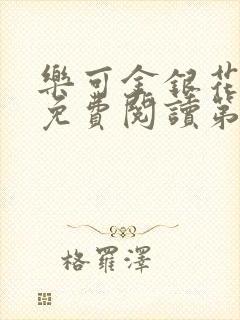 樂可金銀花
免費閱讀第
格羅澤